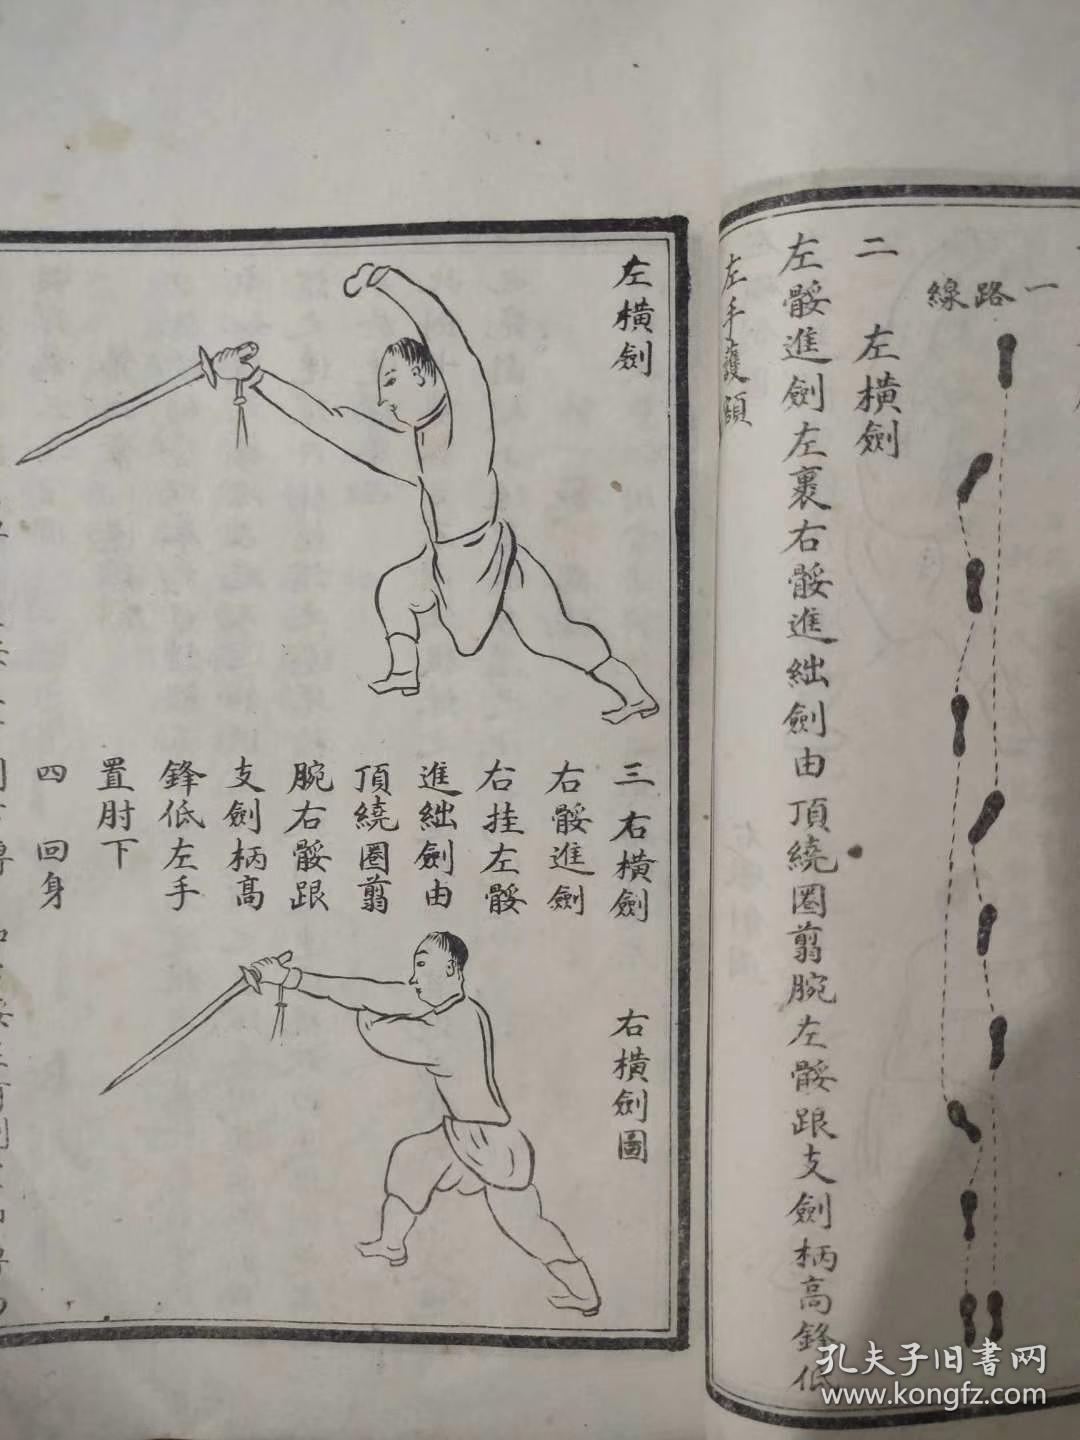 線路一
二　左橫劍
左骽進劍左裹右骽進絀劍由頂繞圈翦腕左骽跟支劍柄高鋒低
左手護頭
左橫劍
三右橫劍
右骽進劍
右挂左骽
進絀劍由
頂繞圈翦
腕右骽跟
支劍柄高
鋒低左手
置肘下
四　回身
右橫劍圖
孔夫子旧書网
www.kongfz.com